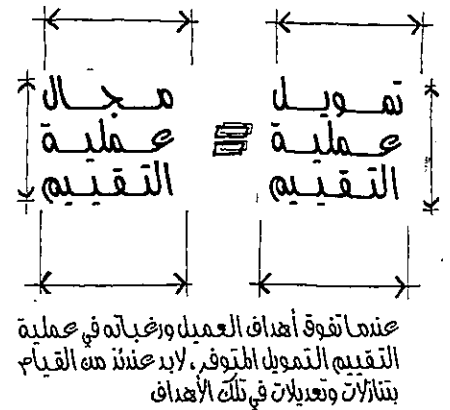 تمويل = مجال
عملية عملية
التقييم التقييم
عندما تفوق أهداف العميل ورغباته في عملية
التقييم التمويل المتوفر، لابد عندئذ من القيام
بتنازلات وتعديلات في تلك الأهداف